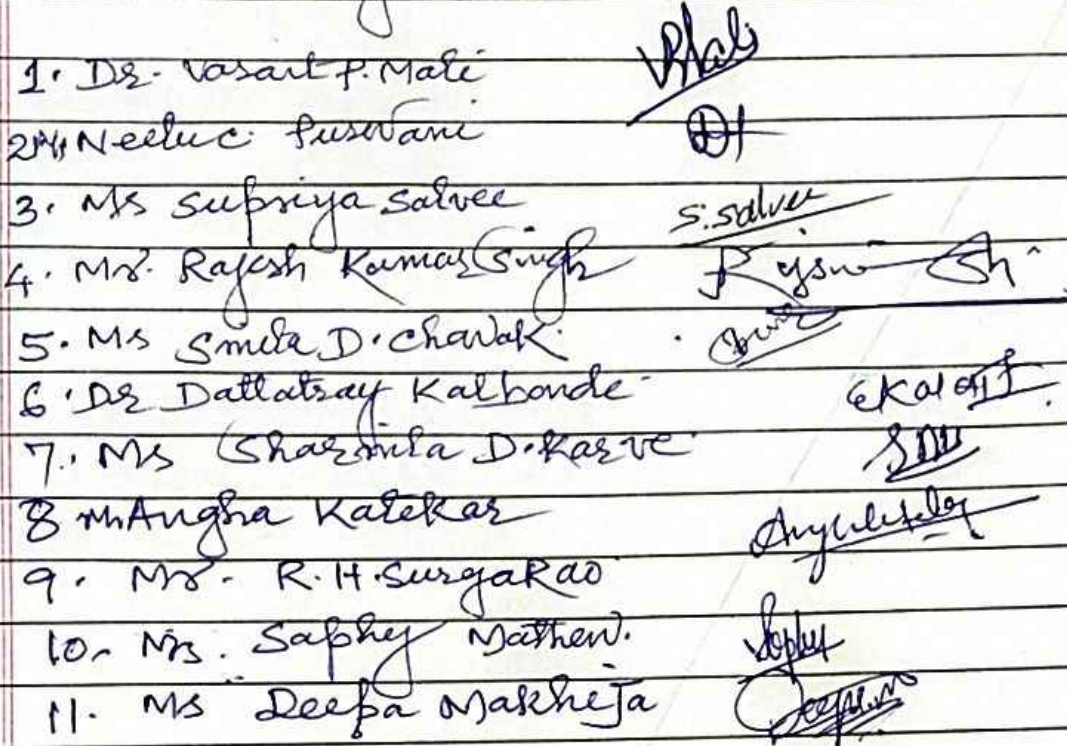 1. Dr. Vasant P. Mali
2. Neelu C. Puswani
3. Ms Supriya Salvee S. Salvee
4. Mr. Rajesh Kumar Singh
5. Ms Smita D. Chavak.
6. Dr Dattatray Kalbonde
7. Ms Sharmila D. Karve
8 Angha Katekar
9. Mr. R. H. SuryaRao
10. Mrs. Saphy Mathew. Sophy
11. Ms Deepa Makheja Deepa.m